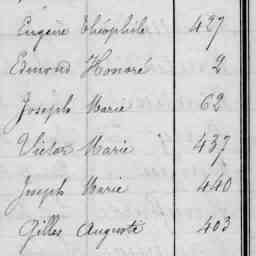 Eugène Théophile 427
Edmond Honoré 2
Joseph Marie 62
Victor Marie 437
Joseph Marie 440
Gilles Auguste 403